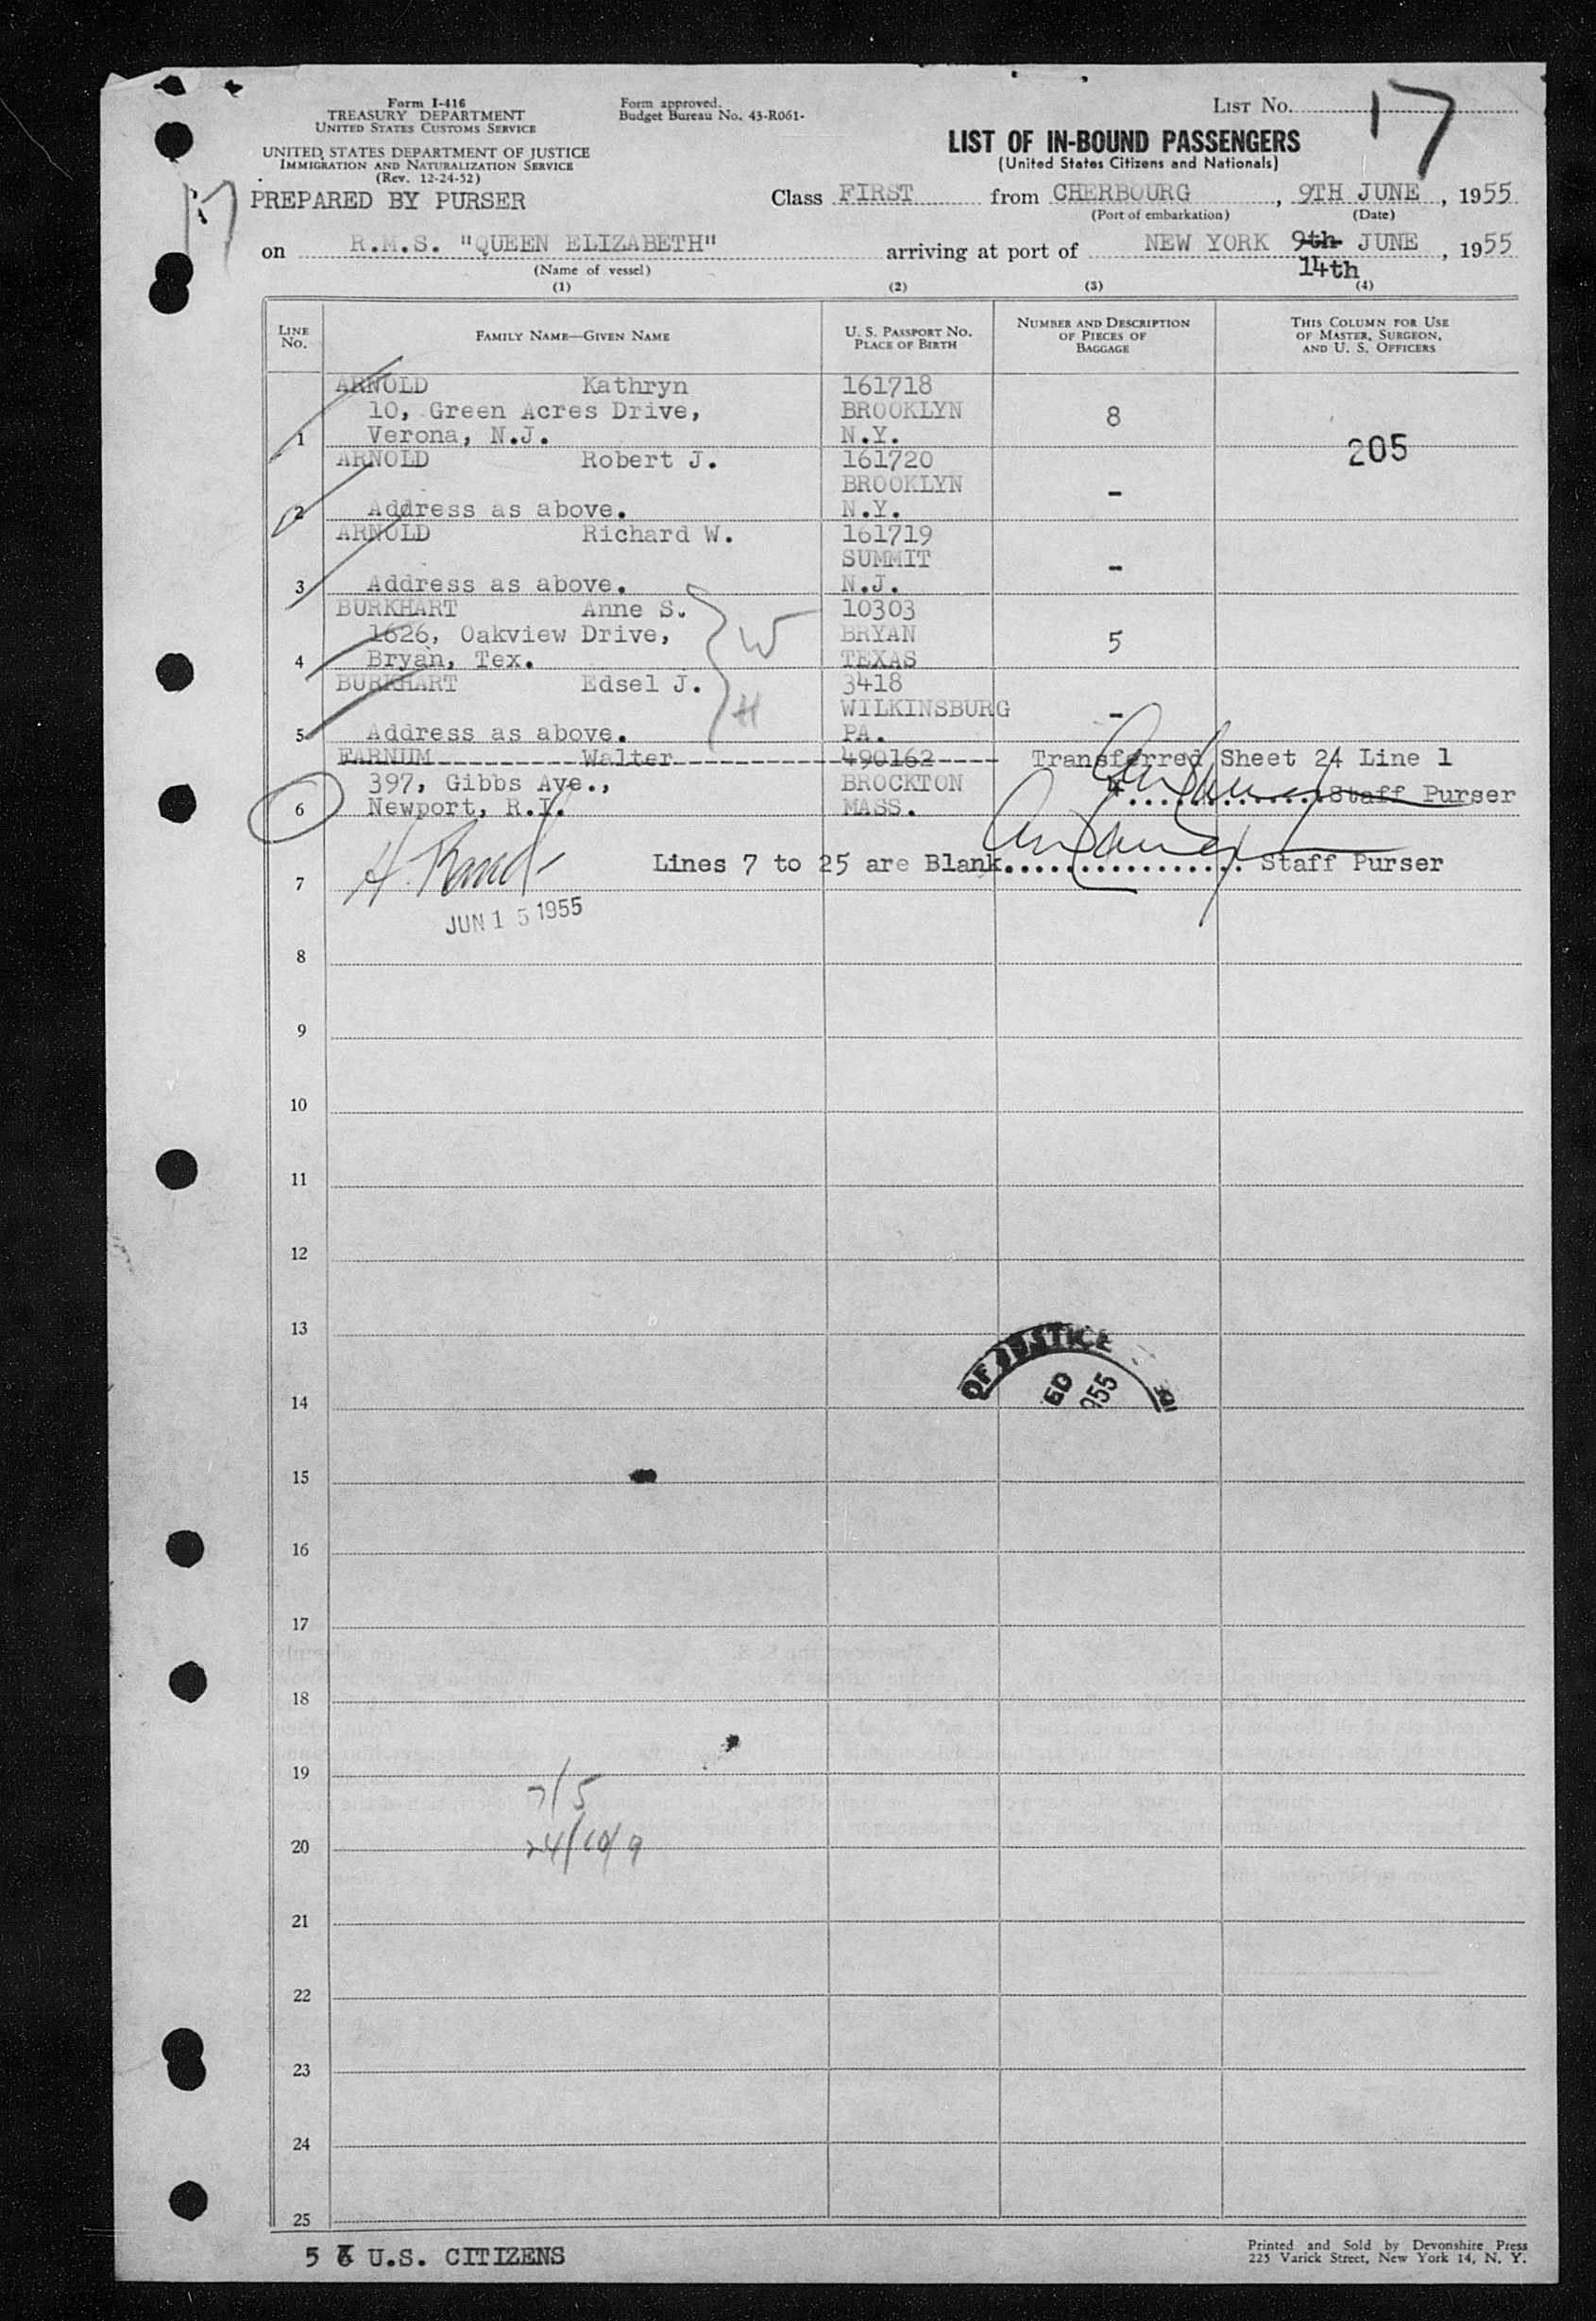 Form I-416
TREASURY DEPARTMENT
UNITED STATES CUSTOMS SERVICE
UNITED STATES DEPARTMENT OF JUSTICE
IMMIGRATION AND NATURALIZATION SERVICE
(Rev. 12-24-52)
Form approved.
Budget Bureau No. 43-R061-
LIST No. 17
LIST OF IN-BOUND PASSENGERS
(United States Citizens and Nationals)
17
PREPARED BY PURSER
Class FIRST from CHERBOURG, 9TH JUNE, 1955
(Port of embarkation) (Date)
on R.M.S. "QUEEN ELIZABETH" arriving at port of NEW YORK 9th JUNE, 1955
(Name of vessel) 14th
(1) (2) (3) (4)
LINE No. FAMILY NAME—GIVEN NAME U. S. PASSPORT No. PLACE OF BIRTH NUMBER AND DESCRIPTION OF PIECES OF BAGGAGE THIS COLUMN FOR USE OF MASTER, SURGEON, AND U. S. OFFICERS
ARNOLD Kathryn 161718
10, Green Acres Drive, BROOKLYN 8
1 Verona, N.J. N.Y. 205
ARNOLD Robert J. 161720
BROOKLYN -
2 Address as above. N.Y.
ARNOLD Richard W. 161719
SUMMIT -
3 Address as above. N.J.
BURKHART Anne S. 10303
1626, Oakview Drive, W BRYAN 5
4 Bryan, Tex. TEXAS
BURKHART Edsel J. 3418
H WILKINSBURG -
5 Address as above. PA.
FARNUM Walter 490162 Transferred Sheet 24 Line 1
397, Gibbs Ave., BROCKTON Staff Purser
6 Newport, R.I. MASS.
7 Lines 7 to 25 are Blank................. Staff Purser
JUN 15 1955
8
9
10
11
12
13
OF JUSTICE
ED
955
14
15
16
17
18
19
7/5
20 24/10/9
21
22
23
24
25
5 6 U.S. CITIZENS
Printed and Sold by Devonshire Press
225 Varick Street, New York 14, N. Y.